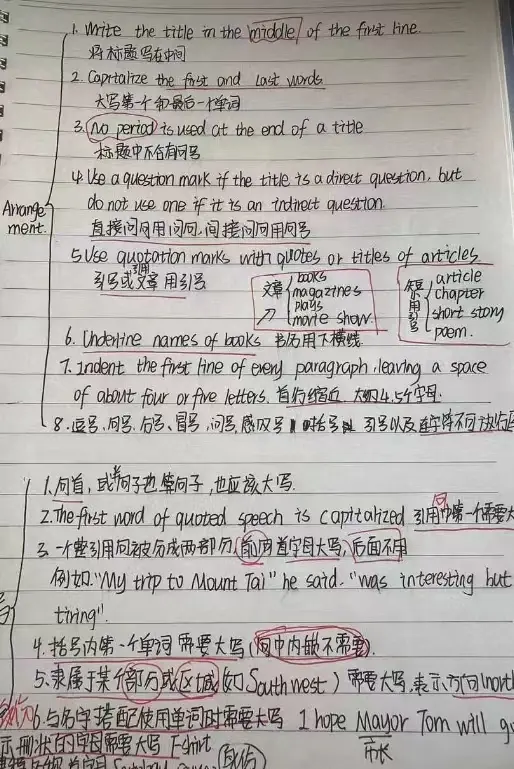 1. Write the title in the middle of the first line
将标题写在中间
2. Capitalize the first and last words.
大写第一个和最后一个单词
3. No period is used at the end of a title
标题中不含有句号
4 Use a question mark if the title is a direct question, but
do not use one if it is an indirect question
直接问句用问号,间接问句用句号
Arrange
ment.
5 Use quotation marks with quotes or titles of articles.
引号或引用文章用引号
文章 books
magazines
plays
movie show.
短 用引号 article
chapter
short story
poem.
6. Underline names of books 书名用下横线
7. Indent the first line of every paragraph, leaving a space
of about four or five letters. 首行缩进 大约4.5个字母.
8. 逗号、句号、冒号、问号、感叹号 引号以及连字符不可
1. 句首, 句子也 句子, 也应该大写.
2. The first word of quoted speech is capitalized 引用句中第一个需要大
3. 一个整引用句被分成两部分,前面首字母大写,后面不用
例如."My trip to Mount Tai" he said. "was interesting but
tiring".
4. 括号内第一个单词 需要大写(句中内嵌不需要).
5. 隶属于某个部分或区域(如Southwest) 需要大写,表示方向north
6. 与名字搭配使用单词时需要大写 I hope Mayor Tom will go
市长
示形状的字母需要大写 T-shirt